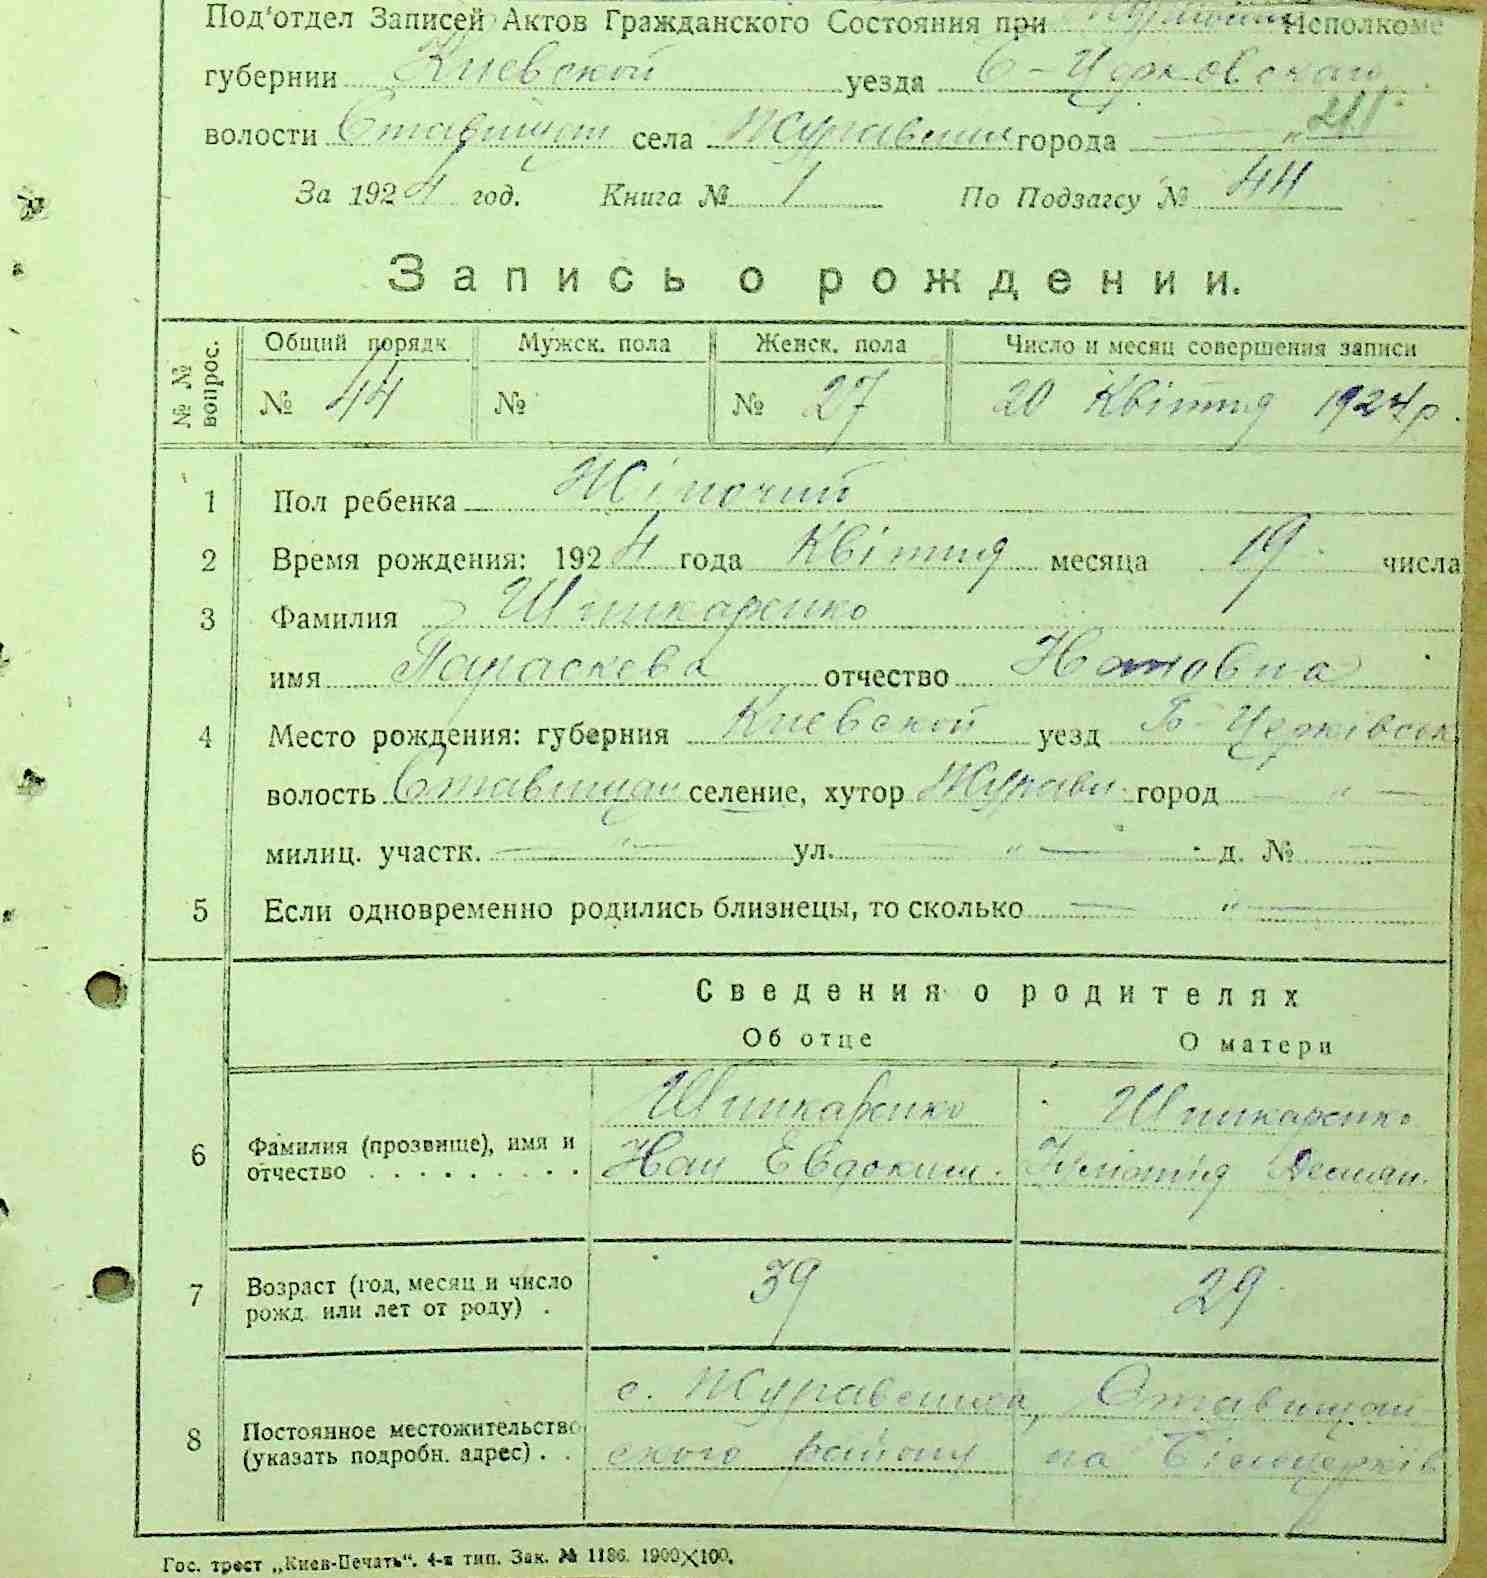 Под'отдел Записей Актов Гражданского Состояния при Исполкоме
губернии Киевской уезда Б-Церковскаго
волости Ставищан села Журавлихи города — " —
За 1924 год. Книга № 1 По Подзагсу № 44
Запись о рождении.
№ № вопрос. Общий порядк Мужск. пола Женск. пола Число и месяц совершения записи
№ 44 № № 27 20 Квітня 1924 р.
1 Пол ребенка Жіночий
2 Время рождения: 1924 года Квітня месяца 19 числа
3 Фамилия Шпикаренко
имя Параскева отчество
4 Место рождения: губерния Киевской уезд Б-Церківськ
волость Ставищан селение, хутор Журавл. город — " —
милиц. участк. — " — ул. — " — д. № —
5 Если одновременно родились близнецы, то сколько — " —
Сведения о родителях
Об отце О матери
Шпикаренко Шпикаренко
6 Фамилия (прозвище), имя и
отчество . . . . . . . . . Евдоким. Демян.
7 Возраст (год, месяц и число
рожд. или лет от роду) . 39 29
с. Журавлиха, Ставищан
8 Постоянное местожительство
(указать подробн. адрес) . . ского району на Білоцерків
Гос. трест „Киев-Печать“. 4-я тип. Зак. № 1186. 1900×100.